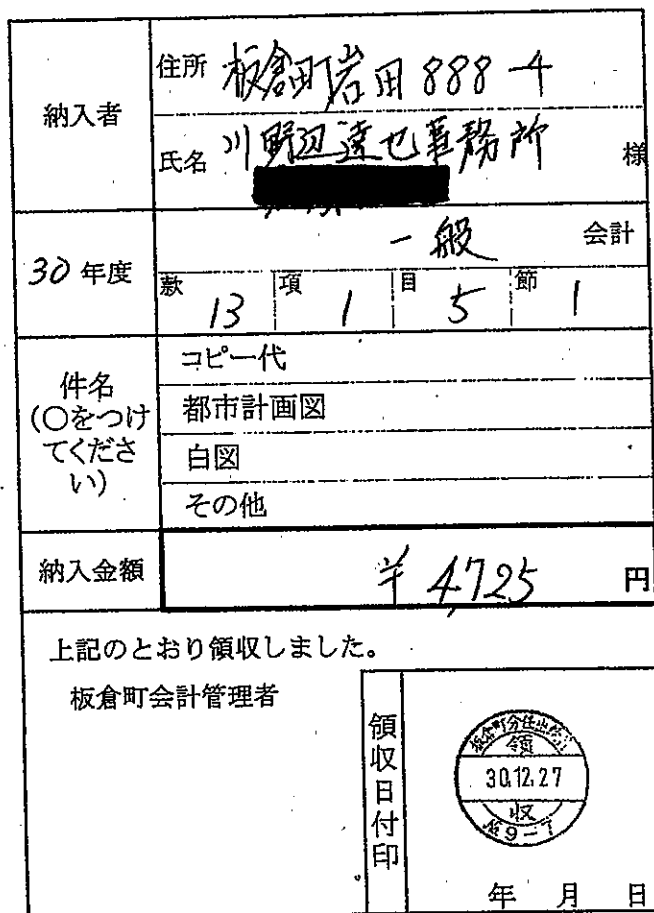 納入者
住所 板倉町岩田888-4
氏名 川野辺達也事務所 様
30年度
一般 会計
款 13 項 1 目 5 節 1
件名
(○をつけ
てくださ
い)
コピー代
都市計画図
白図
その他
納入金額
¥4,725 円
上記のとおり領収しました。
板倉町会計管理者
領収日付印
板倉町分任出納員
領
30.12.27
収
№9-7
年 月 日